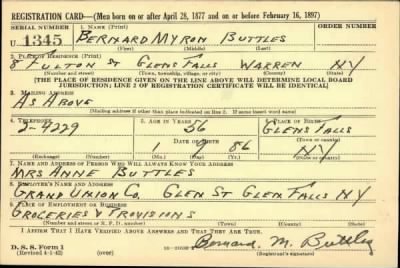 REGISTRATION CARD—(Men born on or after April 28, 1877 and on or before February 16, 1897)
SERIAL NUMBER 1. Name (Print) ORDER NUMBER
U 1345 BERNARD MYRON BUTTLES
(First) (Middle) (Last)
2. Place of Residence (Print)
8 FULTON ST GLENS FALLS WARREN NY
(Number and street) (Town, township, village, or city) (County) (State)
[THE PLACE OF RESIDENCE GIVEN ON THE LINE ABOVE WILL DETERMINE LOCAL BOARD
JURISDICTION; LINE 2 OF REGISTRATION CERTIFICATE WILL BE IDENTICAL]
3. Mailing Address
AS ABOVE
[Mailing address if other than place indicated on line 2. If same insert word same]
4. Telephone 5. Age in Years 6. Place of Birth
2-4229 56 GLENS FALLS
Date of Birth (Town or county)
1 9 86 NY
(Exchange) (Number) (Mo.) (Day) (Yr.) (State or country)
7. Name and Address of Person Who Will Always Know Your Address
MRS ANNE BUTTLES
8. Employer's Name and Address
GRAND UNION CO. GLEN ST GLEN FALLS NY
9. Place of Employment or Business
GROCERIES & PROVISIONS
(Number and street or R. F. D. number) (Town) (County) (State)
I Affirm That I Have Verified Above Answers and That They Are True.
D. S. S. Form 1
(Revised 4-1-42) (over) Bernard M. Buttles
(Registrant's signature)